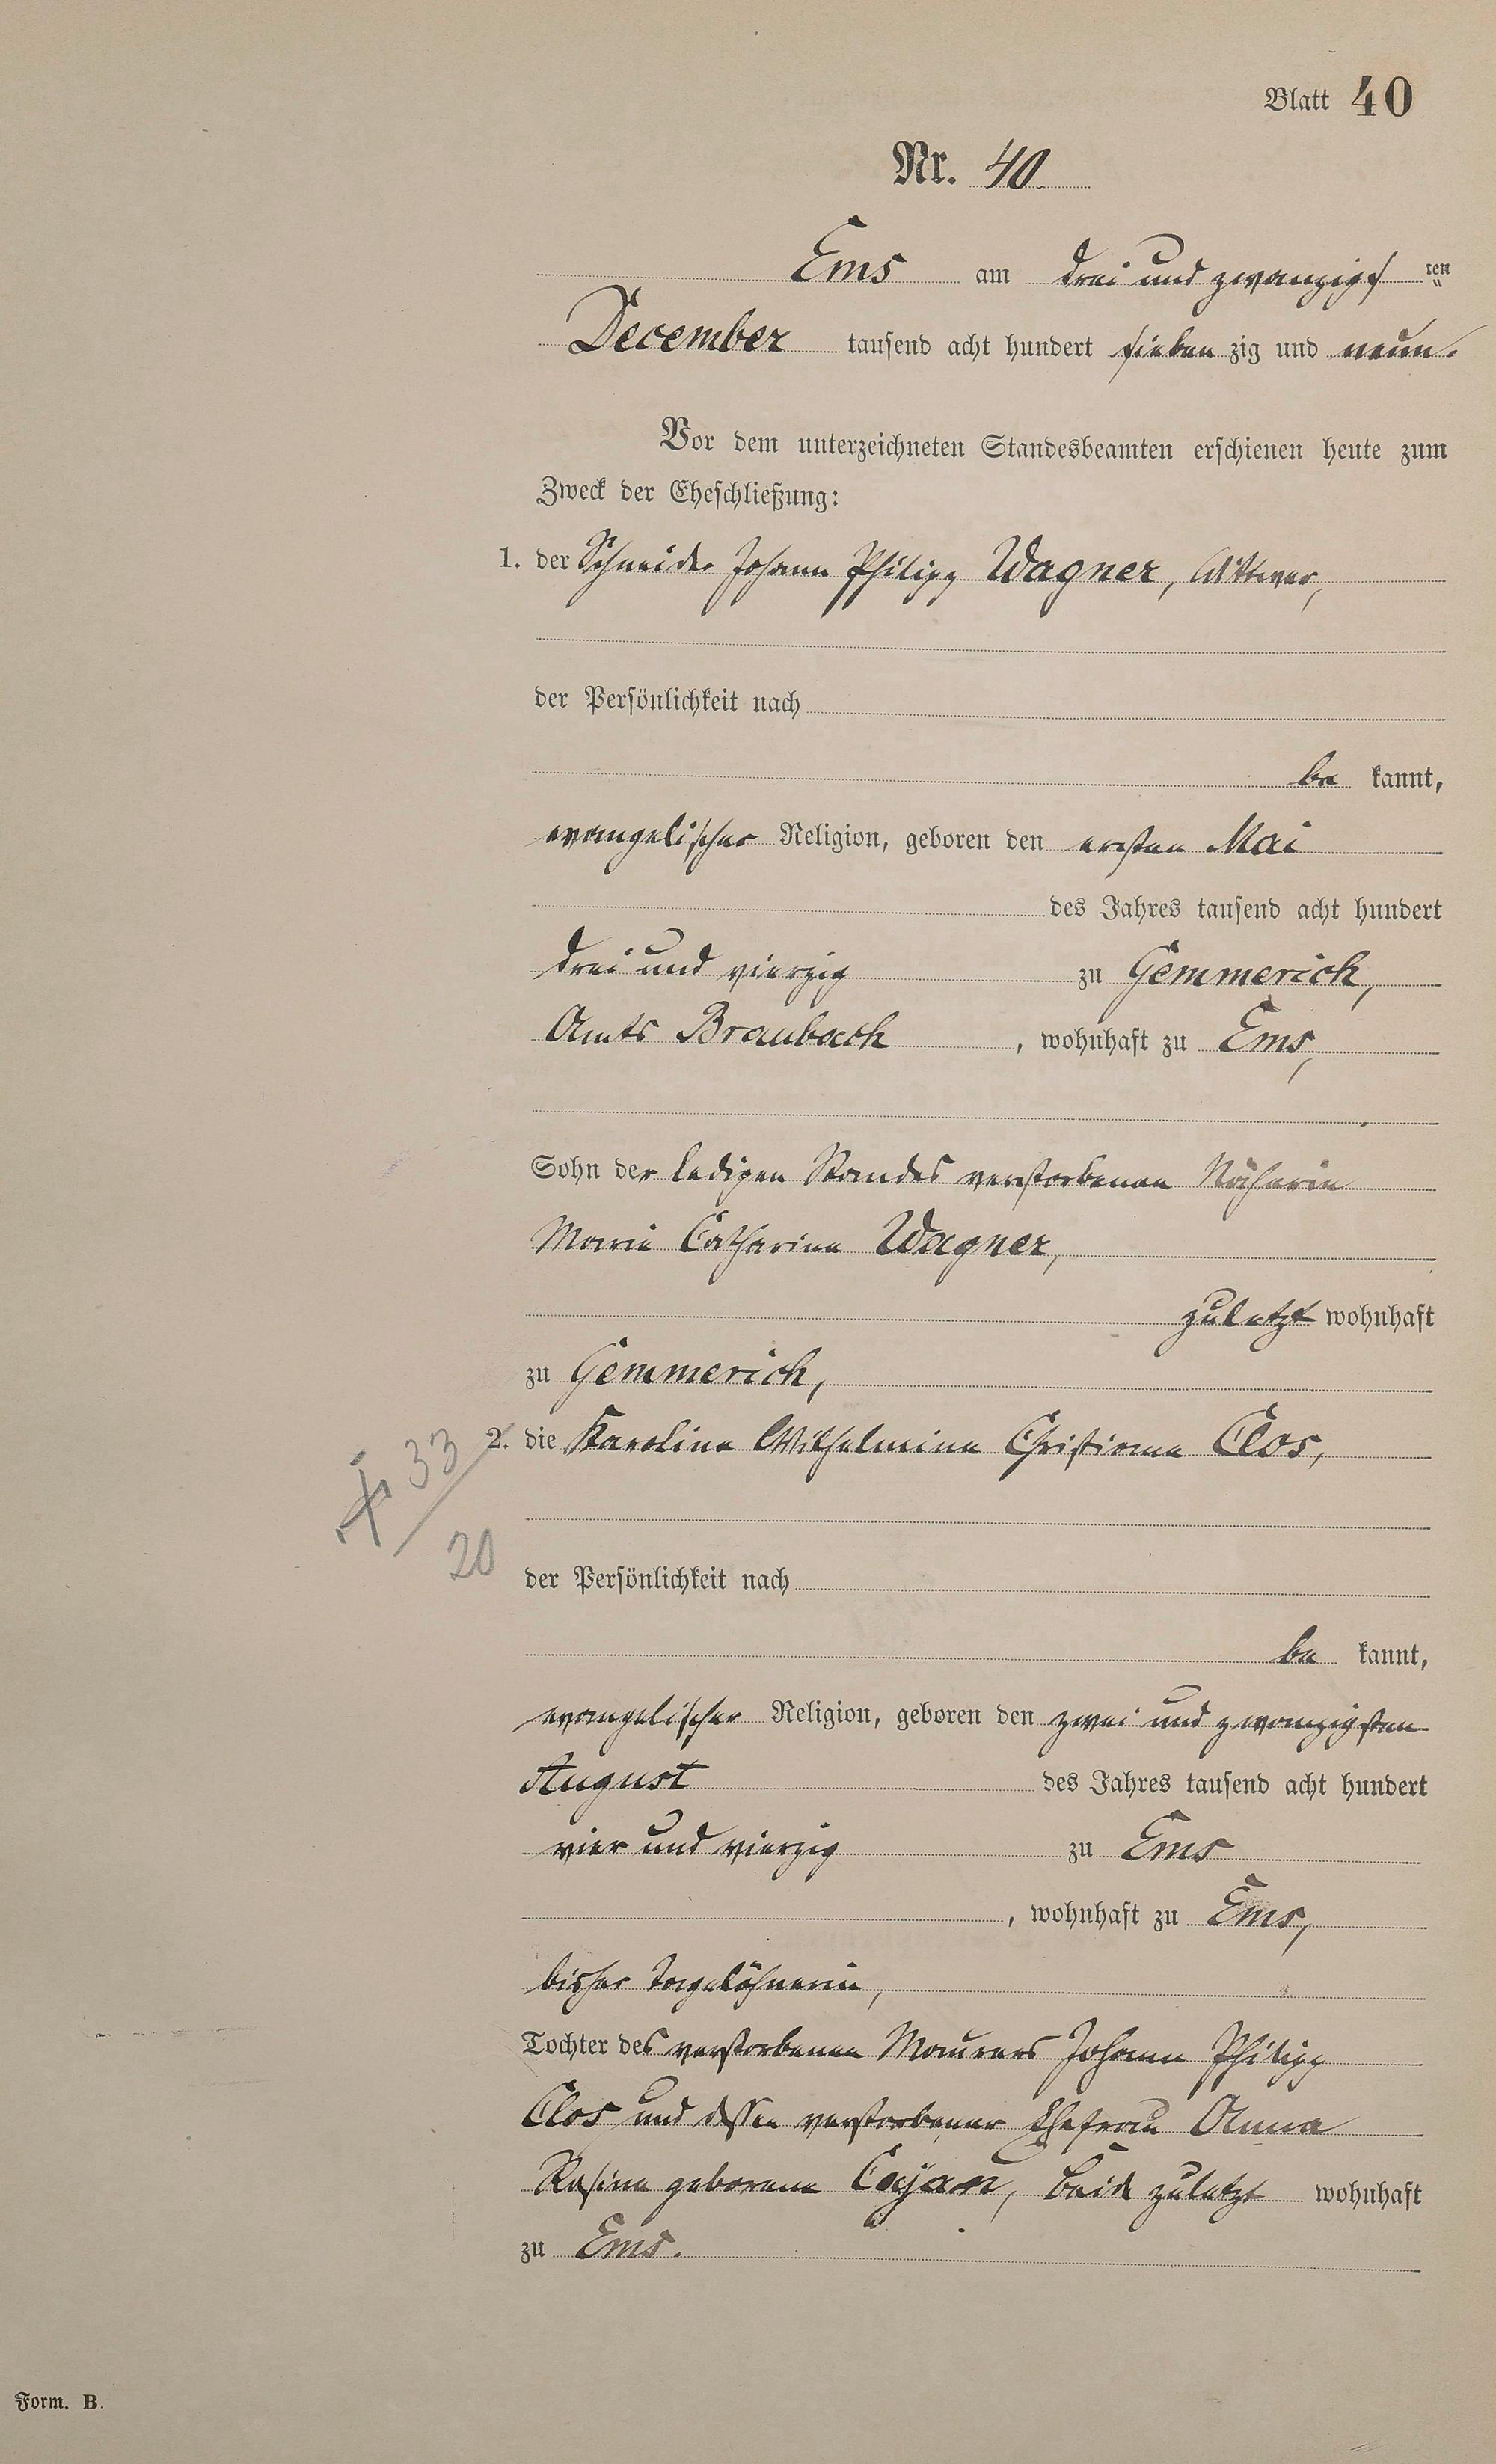 Blatt 40
Nr. 40.
Ems am drei und zwanzigsten
December tausend acht hundert sieben zig und neun.
Vor dem unterzeichneten Standesbeamten erschienen heute zum
Zweck der Eheschließung:
1. der Schneider Johann Philipp Wagner, Wittwer,
der Persönlichkeit nach
be kannt,
evangelischer Religion, geboren den ersten Mai
des Jahres tausend acht hundert
drei und vierzig zu Gemmerich,
Amts Braubach, wohnhaft zu Ems,
Sohn der ledigen Standes verstorbenen Näherin
Marie Catharina Wagner,
zuletzt wohnhaft
zu Gemmerich,
2. die Karolina Wilhelmina Christiana Clos,
33
20
der Persönlichkeit nach
be kannt,
evangelischer Religion, geboren den zwei und zwanzigsten
August des Jahres tausend acht hundert
vier und vierzig zu Ems
, wohnhaft zu Ems,
bisher Tagelöhnerin,
Tochter des verstorbenen Maurers Johann Philipp
Clos und dessen verstorbener Ehefrau Anna
Rosina geborene Cajan, beide zuletzt wohnhaft
zu Ems.
Form. B.